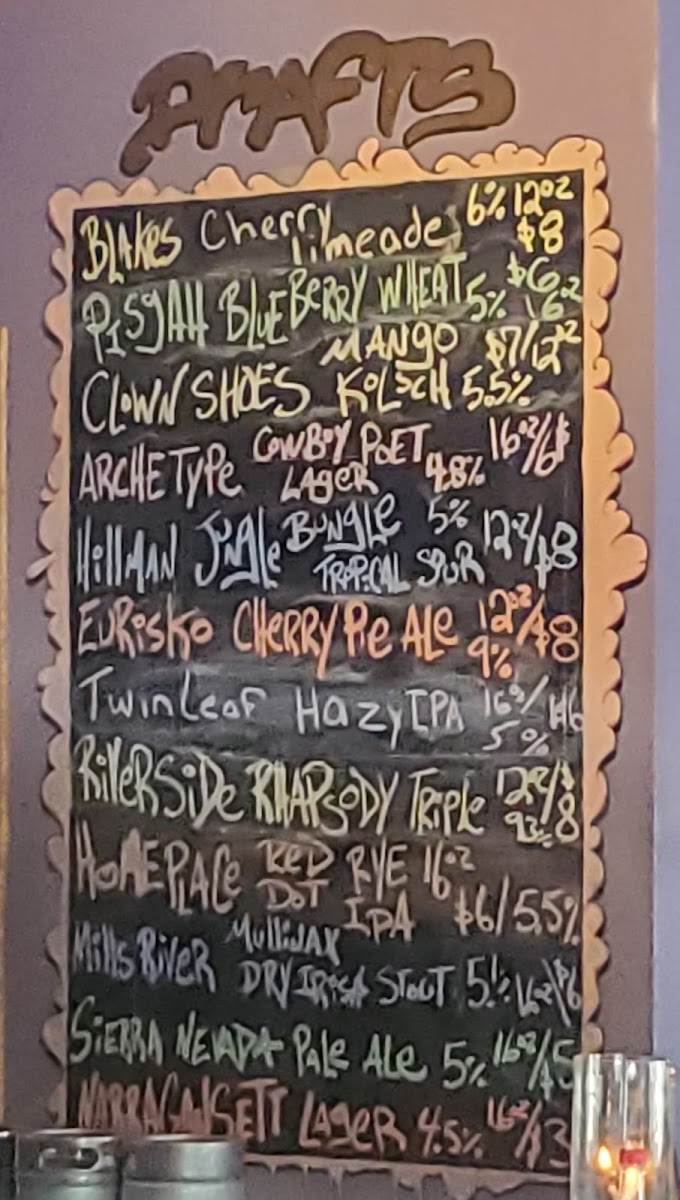 DRAFTS
BLAKES Cherry limeade 6% 12oz $8
PISGAH BLUEBERRY WHEAT 5% $6 16oz
CLOWN SHOES MANGO KOLSCH 5.5% $7/12oz
ARCHETYPE COWBOY POET LAGER 4.8% 16oz/6$
HillMAN JUNGLE BUNGLE TROPICAL SOUR 5% 12oz/$8
EURISKO CHERRY PIE ALE 12oz/$8 9%
Twin Leaf Hazy IPA 16oz/$6 5%
RIVERSiDe RHAPSODY TRIPLE 12oz/$8
HOMEPLACE RED DOT RYE IPA 16oz $6/5.5%
Mills RiVER MulliJAX DRY IRISH STOUT 16oz $6
SiERRA NEVADA Pale Ale 5% 16oz/$5
NARRAGANSETT LAGER 4.5% 16oz/$3